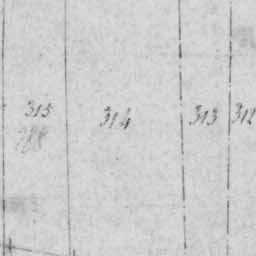 315 314 313 312